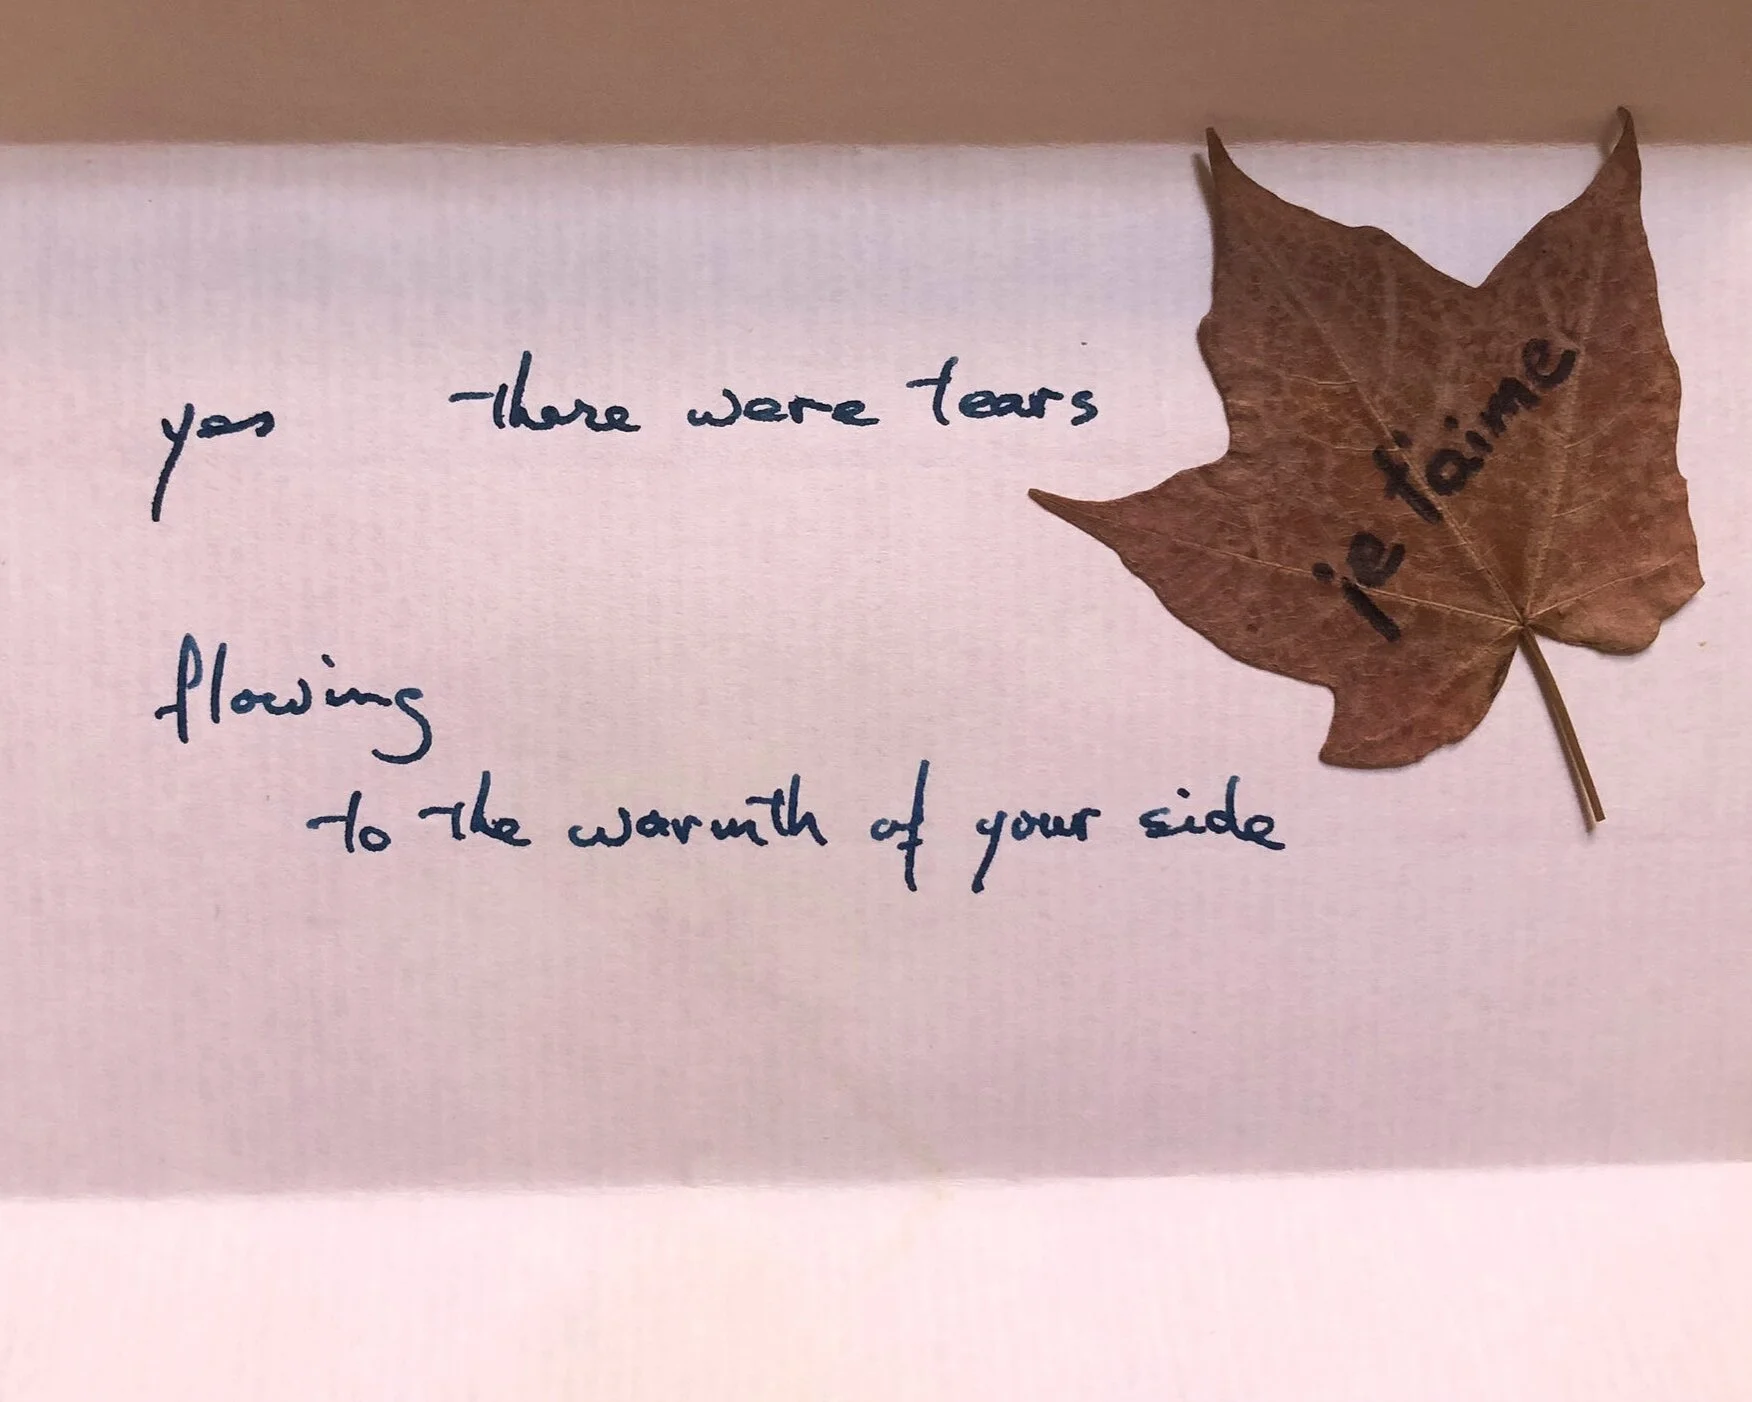 yes there were tears
flowing
to the warmth of your side
je t'aime